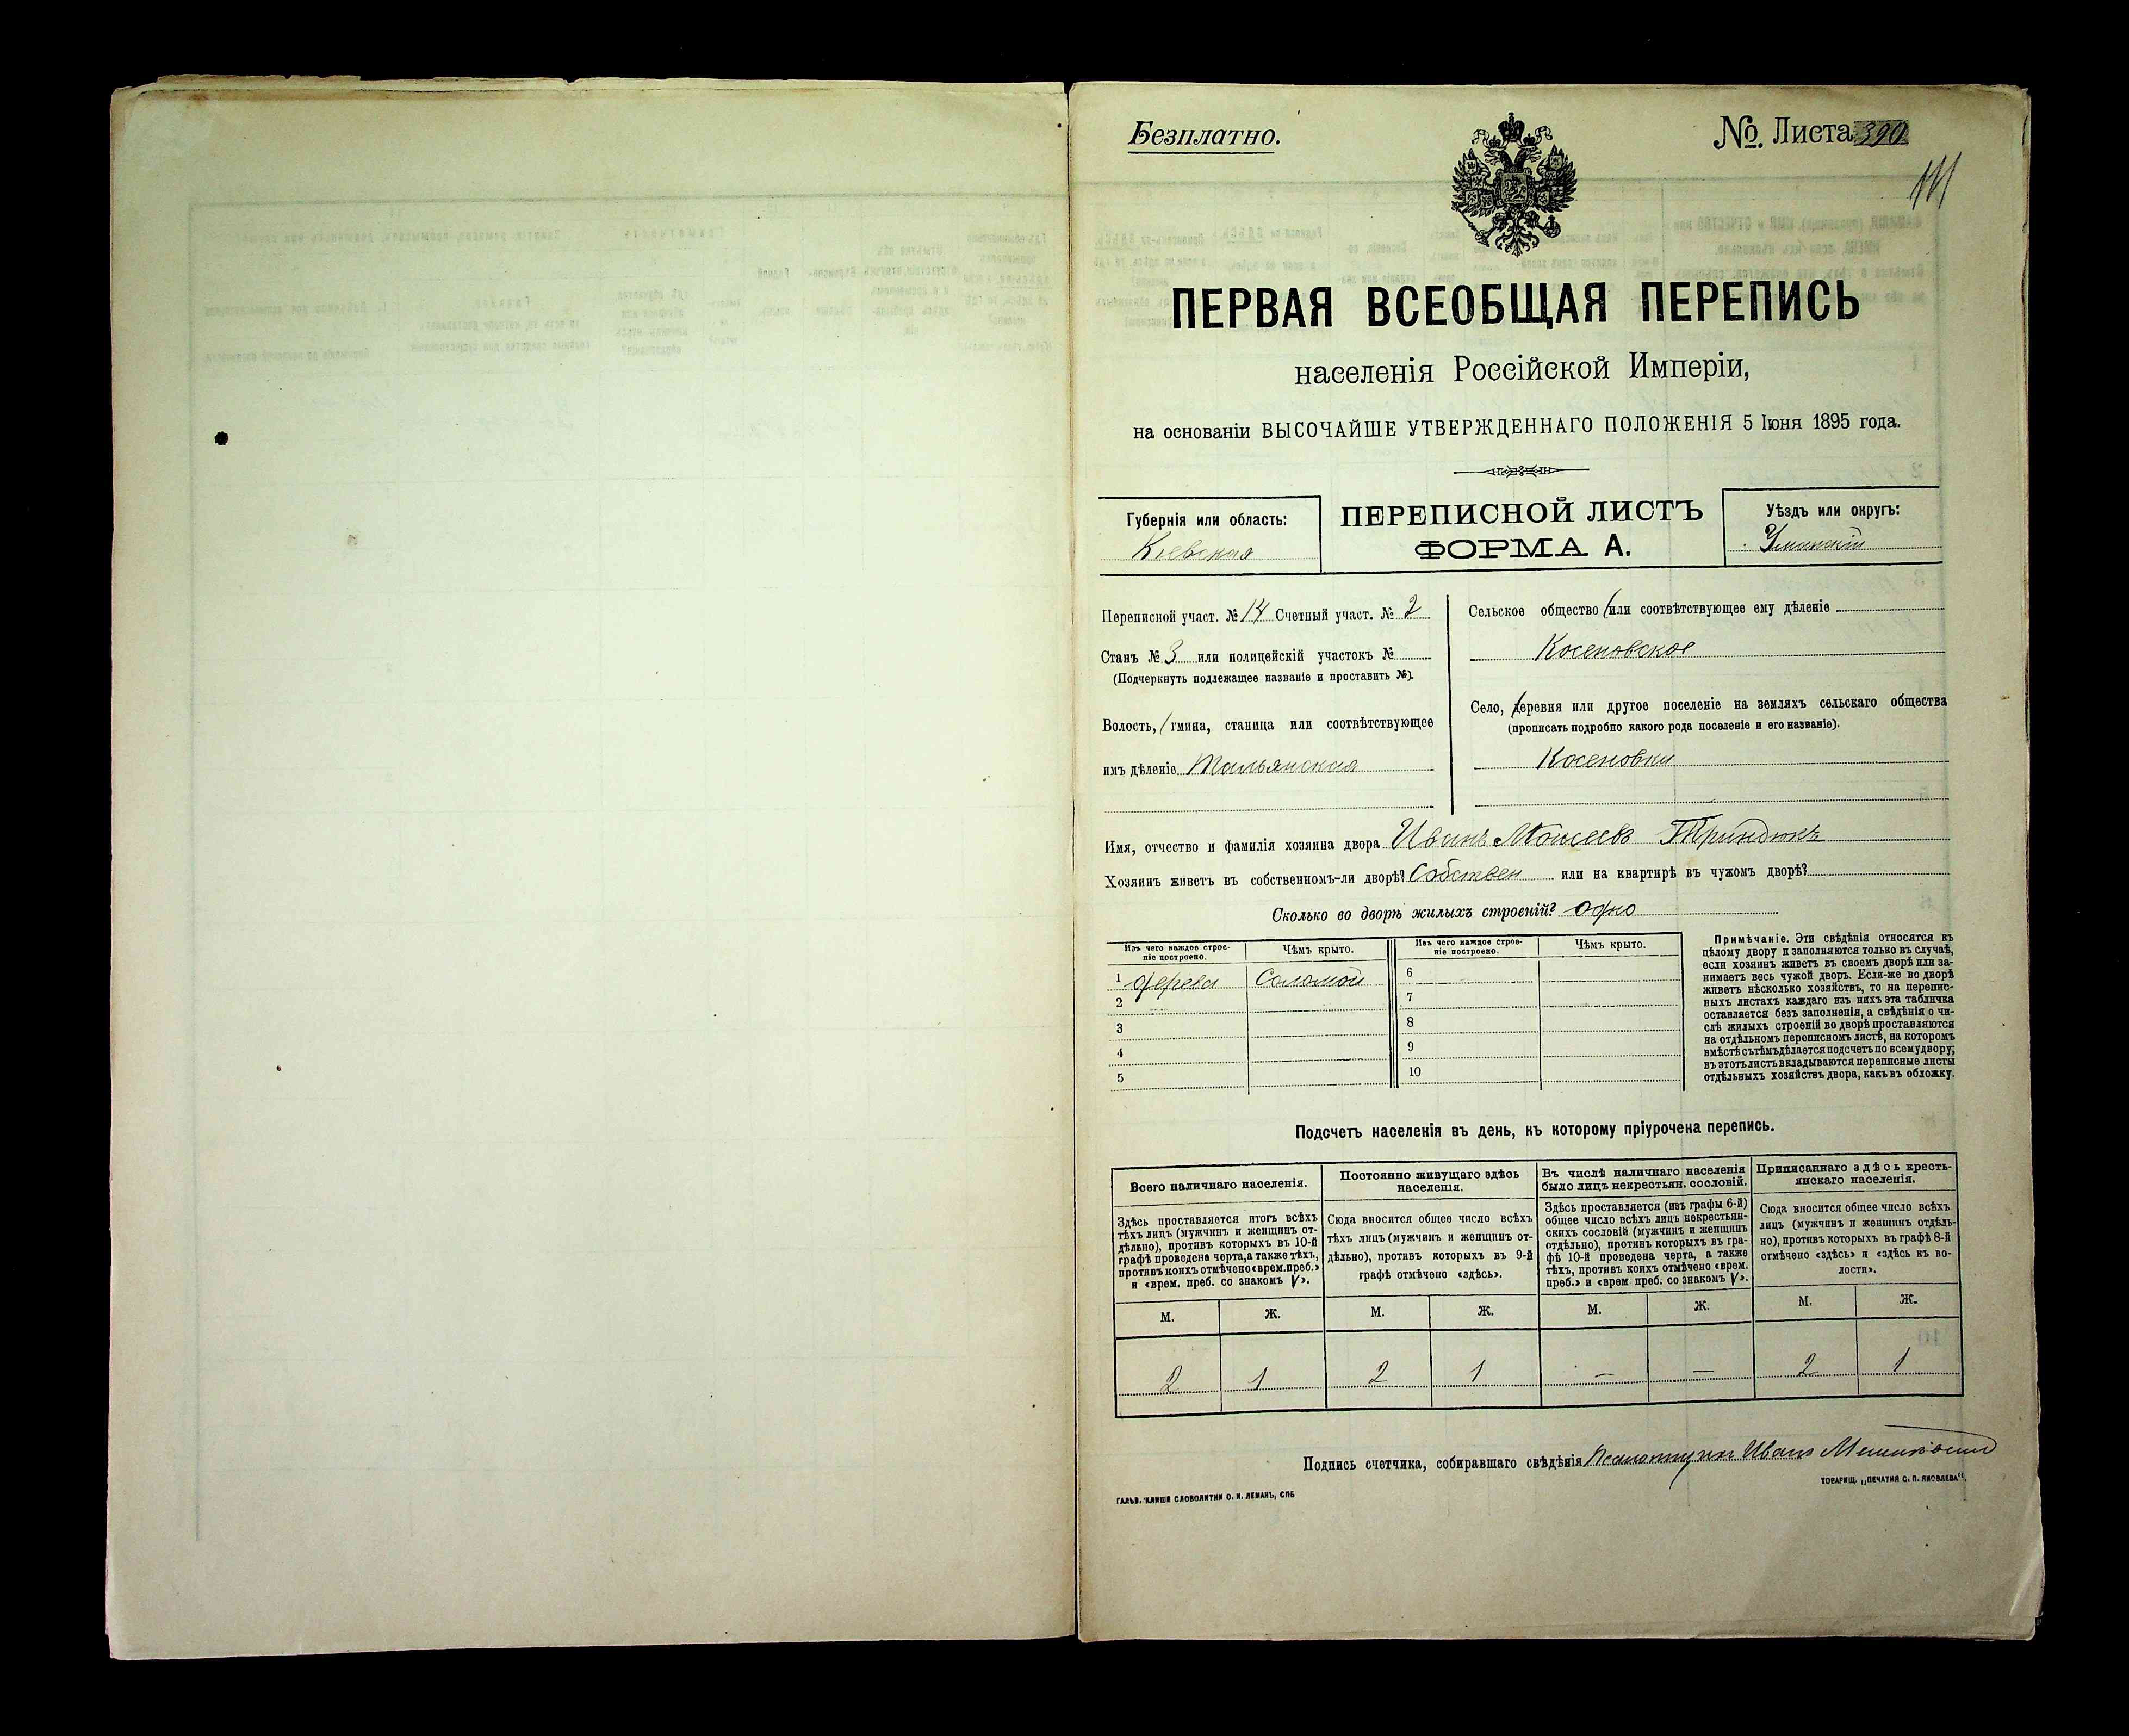 Безплатно.
№ Листа 390
141
ПЕРВАЯ ВСЕОБЩАЯ ПЕРЕПИСЬ
населенія Россійской Имперіи,
на основаніи ВЫСОЧАЙШЕ УТВЕРЖДЕННАГО ПОЛОЖЕНІЯ 5 Іюня 1895 года.
Губернія или область:
Кіевская
ПЕРЕПИСНОЙ ЛИСТЪ
ФОРМА А.
Уѣздъ или округъ:
Уманскій
Переписной участ. № 14 Счетный участ. № 2
Станъ № 3 или полицейскій участокъ №
(Подчеркнуть подлежащее названіе и проставить №).
Волость, гмина, станица или соотвѣтствующее
имъ дѣленіе Тальянская
Сельское общество (или соотвѣтствующее ему дѣленіе
Косеновское
Село, деревня или другое поселеніе на земляхъ сельскаго общества
(прописать подробно какого рода поселеніе и его названіе).
Косеновка
Имя, отчество и фамилія хозяина двора Иванъ Моисеевъ Триндюкъ
Хозяинъ живетъ въ собственномъ-ли дворѣ? Собствен или на квартирѣ въ чужомъ дворѣ?
Сколько во дворѣ жилыхъ строеній? одно
Изъ чего каждое строе-
ніе построено.
Чѣмъ крыто.
1 дерева Соломой
2
3
4
5
Изъ чего каждое строе-
ніе построено.
Чѣмъ крыто.
6
7
8
9
10
Примѣчаніе. Эти свѣдѣнія относятся къ
цѣлому двору и заполняются только въ случаѣ,
если хозяинъ живетъ въ своемъ дворѣ или за-
нимаетъ весь чужой дворъ. Если-же во дворѣ
живетъ нѣсколько хозяйствъ, то на перепис-
ныхъ листахъ каждаго изъ нихъ эта табличка
оставляется безъ заполненія, а свѣдѣнія о чи-
слѣ жилыхъ строеній во дворѣ проставляются
на отдѣльномъ переписномъ листѣ, на которомъ
вмѣстѣ съ тѣмъ дѣлается подсчетъ по всему двору;
въ этотъ листъ вкладываются переписные листы
отдѣльныхъ хозяйствъ двора, какъ въ обложку.
Подсчетъ населенія въ день, къ которому пріурочена перепись.
Всего наличнаго населенія.
Здѣсь проставляется итогъ всѣхъ
тѣхъ лицъ (мужчинъ и женщинъ от-
дѣльно), противъ которыхъ въ 10-й
графѣ проведена черта, а также тѣхъ,
противъ коихъ отмѣчено «врем. преб.»
и «врем. преб. со знакомъ V».
М. Ж.
2 1
Постоянно живущаго здѣсь
населенія.
Сюда вносится общее число всѣхъ
тѣхъ лицъ (мужчинъ и женщинъ от-
дѣльно), противъ которыхъ въ 9-й
графѣ отмѣчено «здѣсь».
М. Ж.
2 1
Въ числѣ наличнаго населенія
было лицъ некрестьян. сословій.
Здѣсь проставляется (изъ графы 6-й)
общее число всѣхъ лицъ некрестьян-
скихъ сословій (мужчинъ и женщинъ
отдѣльно), противъ которыхъ въ гра-
фѣ 10-й проведена черта, а также
тѣхъ, противъ коихъ отмѣчено «врем.
преб.» и «врем преб. со знакомъ V».
М. Ж.
— —
Приписаннаго здѣсь кресть-
янскаго населенія.
Сюда вносится общее число всѣхъ
лицъ (мужчинъ и женщинъ отдѣль-
но), противъ которыхъ въ графѣ 8-й
отмѣчено «здѣсь» и «здѣсь къ во-
лости».
М. Ж.
2 1
Подпись счетчика, собиравшаго свѣдѣнія Иванъ
ГАЛЬВ. КЛИШЕ СЛОВОЛИТНИ О. И. ЛЕМАНЪ, СПБ
ТОВАРИЩ. „ПЕЧАТНЯ С. П. ЯКОВЛЕВА“.